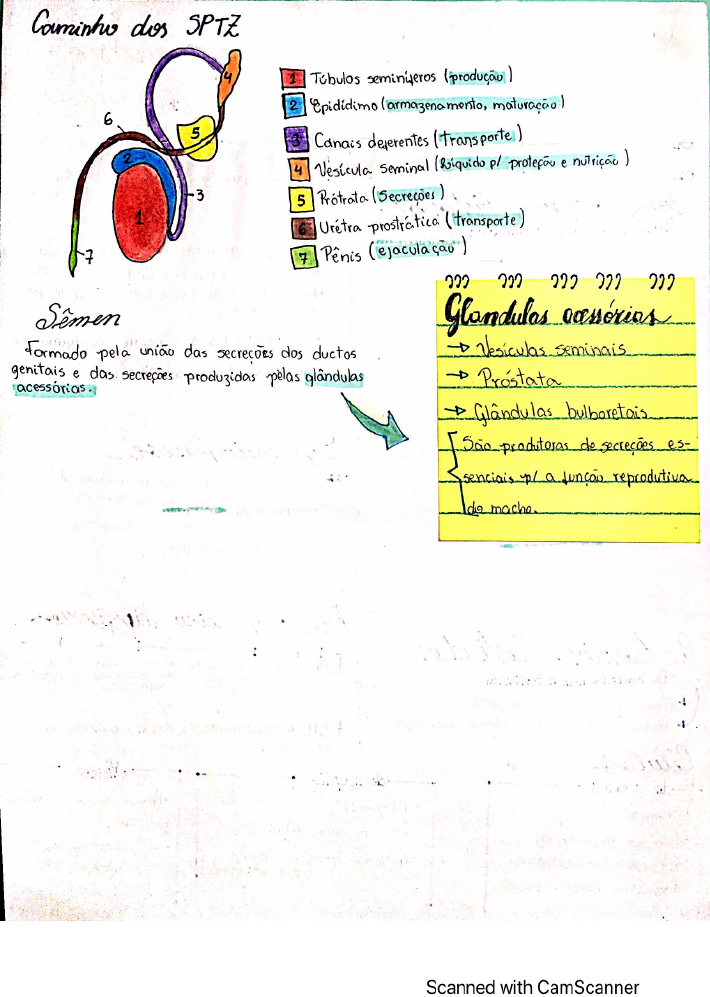 Caminho dos SPTZ
4
5
6
2
3
1
7
1 Túbulos seminíferos (produção)
2 Epidídimo (armazenamento, maturação)
3 Canais deferentes (transporte)
4 Vesícula seminal (líquido p/ proteção e nutrição)
5 Prótrata (Secreções)
6 Urétra prostrática (transporte)
7 Pênis (ejaculação)
Sêmen
Formado pela união das secreções dos ductos
genitais e das secreções produzidas pelas glândulas
acessórias.
Glandulas acessórias
→ Vesículas seminais
→ Próstata
→ Glândulas bulboretais
São produtoras de secreções es-
senciais p/ a função reprodutiva
do macho.
Scanned with CamScanner